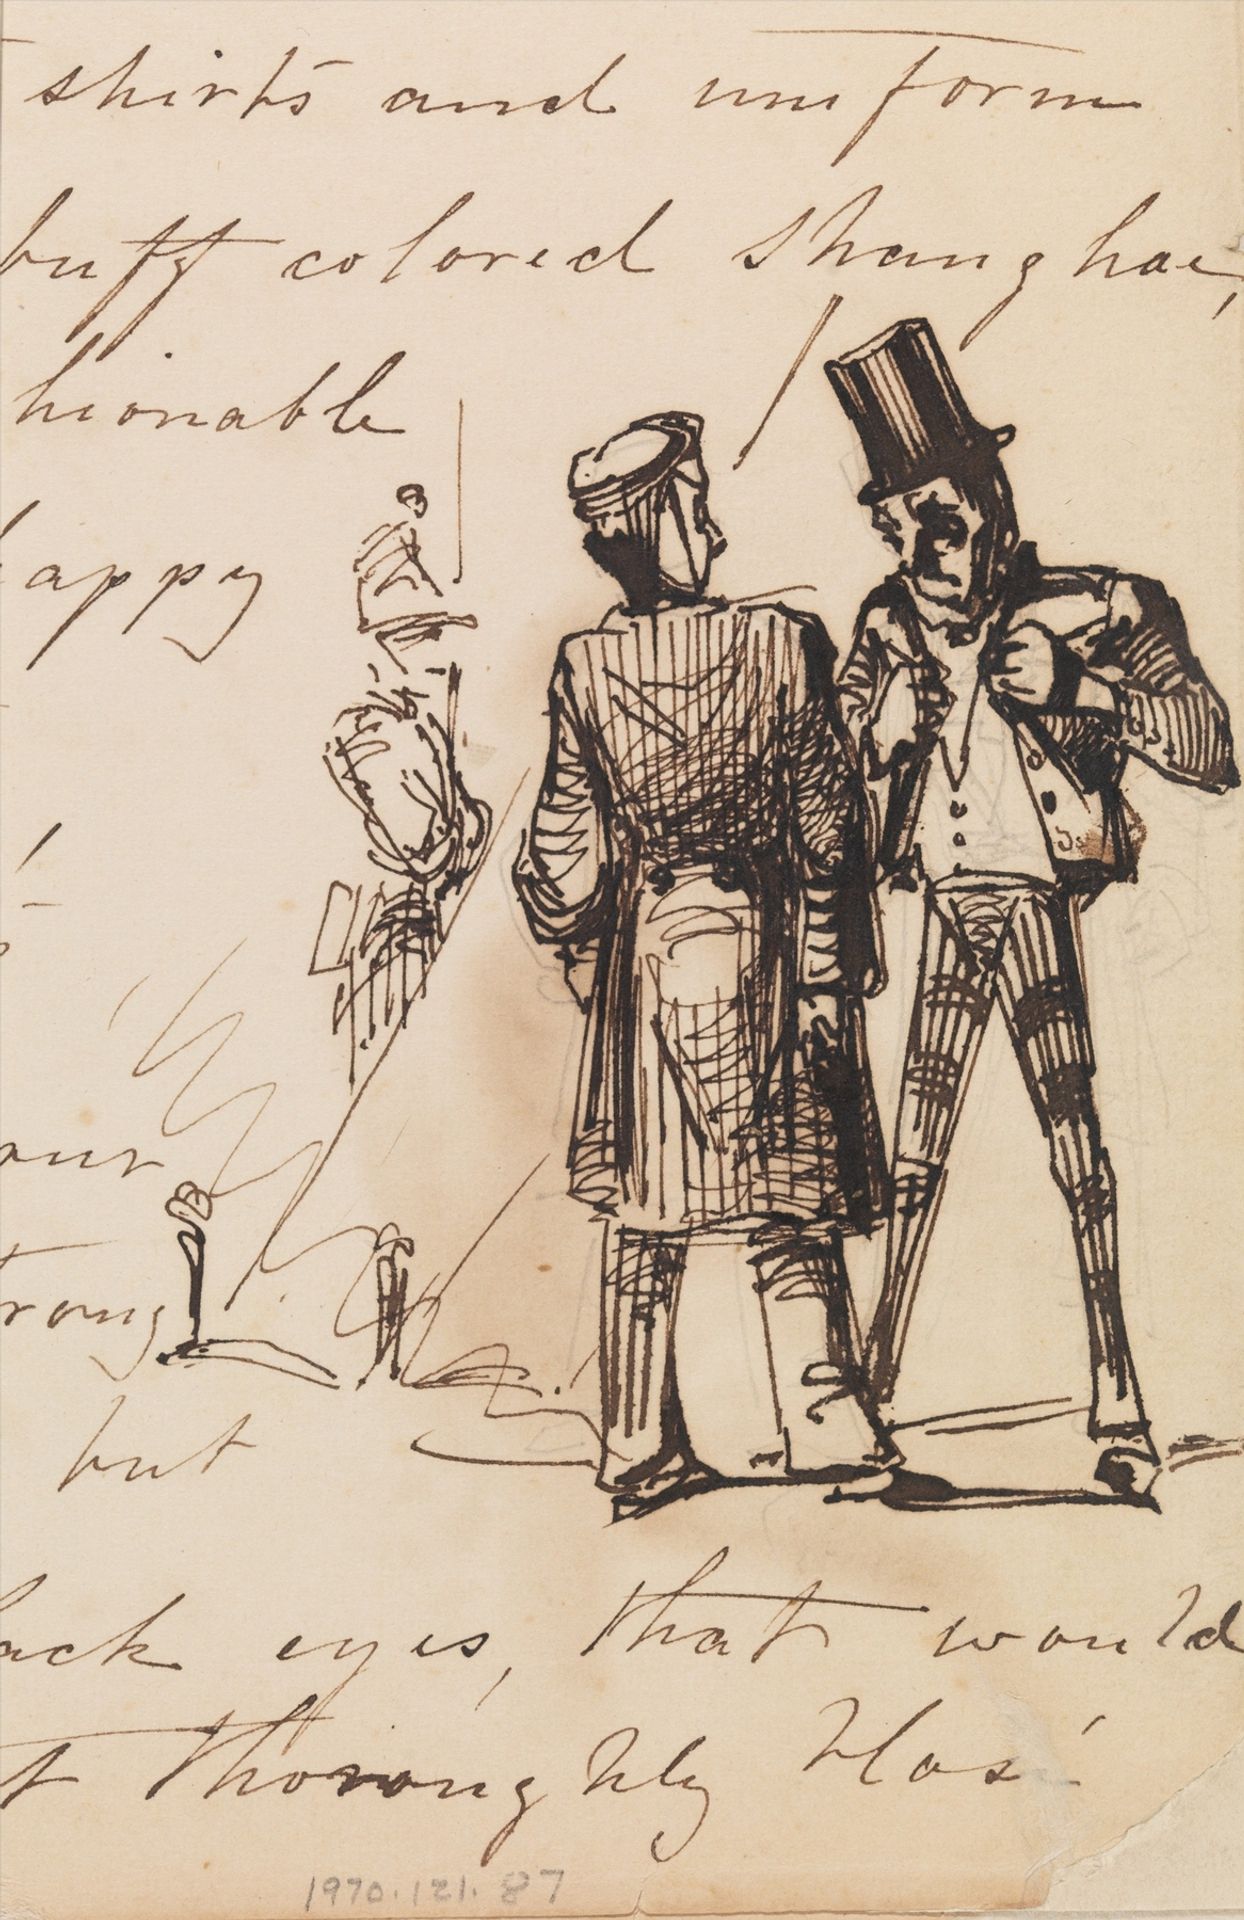 shirts and uniform
buff colored Shanghae,
hionable
appy
our
trong
but
ack eyes, that would
t thoroughly blasé
1970.121.87